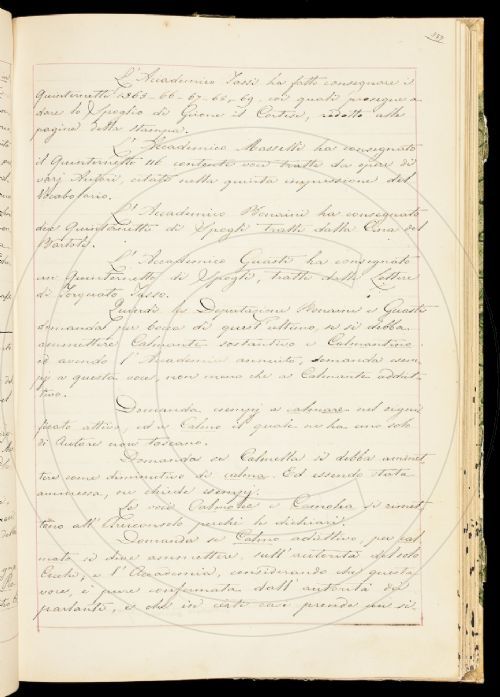 157
L'Accademico Tassi ha fatto consegnare i
Quinternetti 1365-66-67-68-69- coi quali prosegue a
dare lo Spoglio di Girone il Cortese, ridotto alle
pagine della stampa.
L'Accademico Masselli ha consegnato
il Quinternetto 116 contenente voci tratte da opere di
varj Autori, citate nella quinta impressione del
Vocabolario.
L'Accademico ha consegnato
Quinternetti di Spogli tratti dalla Cina del
Bartoli.
L'Accademico Guasti ha consegnato
un Quinternetto di Spogli, tratti dalle Lettere
di Torquato Tasso.
Quindi la Deputazione e Guasti
domanda per bocca di quest'ultimo, se si debba
ammettere Calmante sostantivo e Calmantino
ed avendo l'Accademia annuito, domanda esem
pj a questa voce, non meno che a Calmante addiet
tivo.
Domanda esempj a calmare nel signi
ficato attivo, ed a Calmo il quale ne ha uno solo
di Autore non toscano.
Domanda se Calmella si debba ammet
tere come diminutivo di calma. Ed essendo stata
ammessa, ne chiede esempj.
Le voci e si rimet
tono all'Arciconsolo perchè le dichiari.
Domanda se Calmo addiettivo, per cal
mato si deve ammettere, sull'autorità del solo
Cecchi, e l'Accademia, considerando che questa
voce, è pure confermata dall'autorità dei
parlanti, e che in certi casi prende un si.